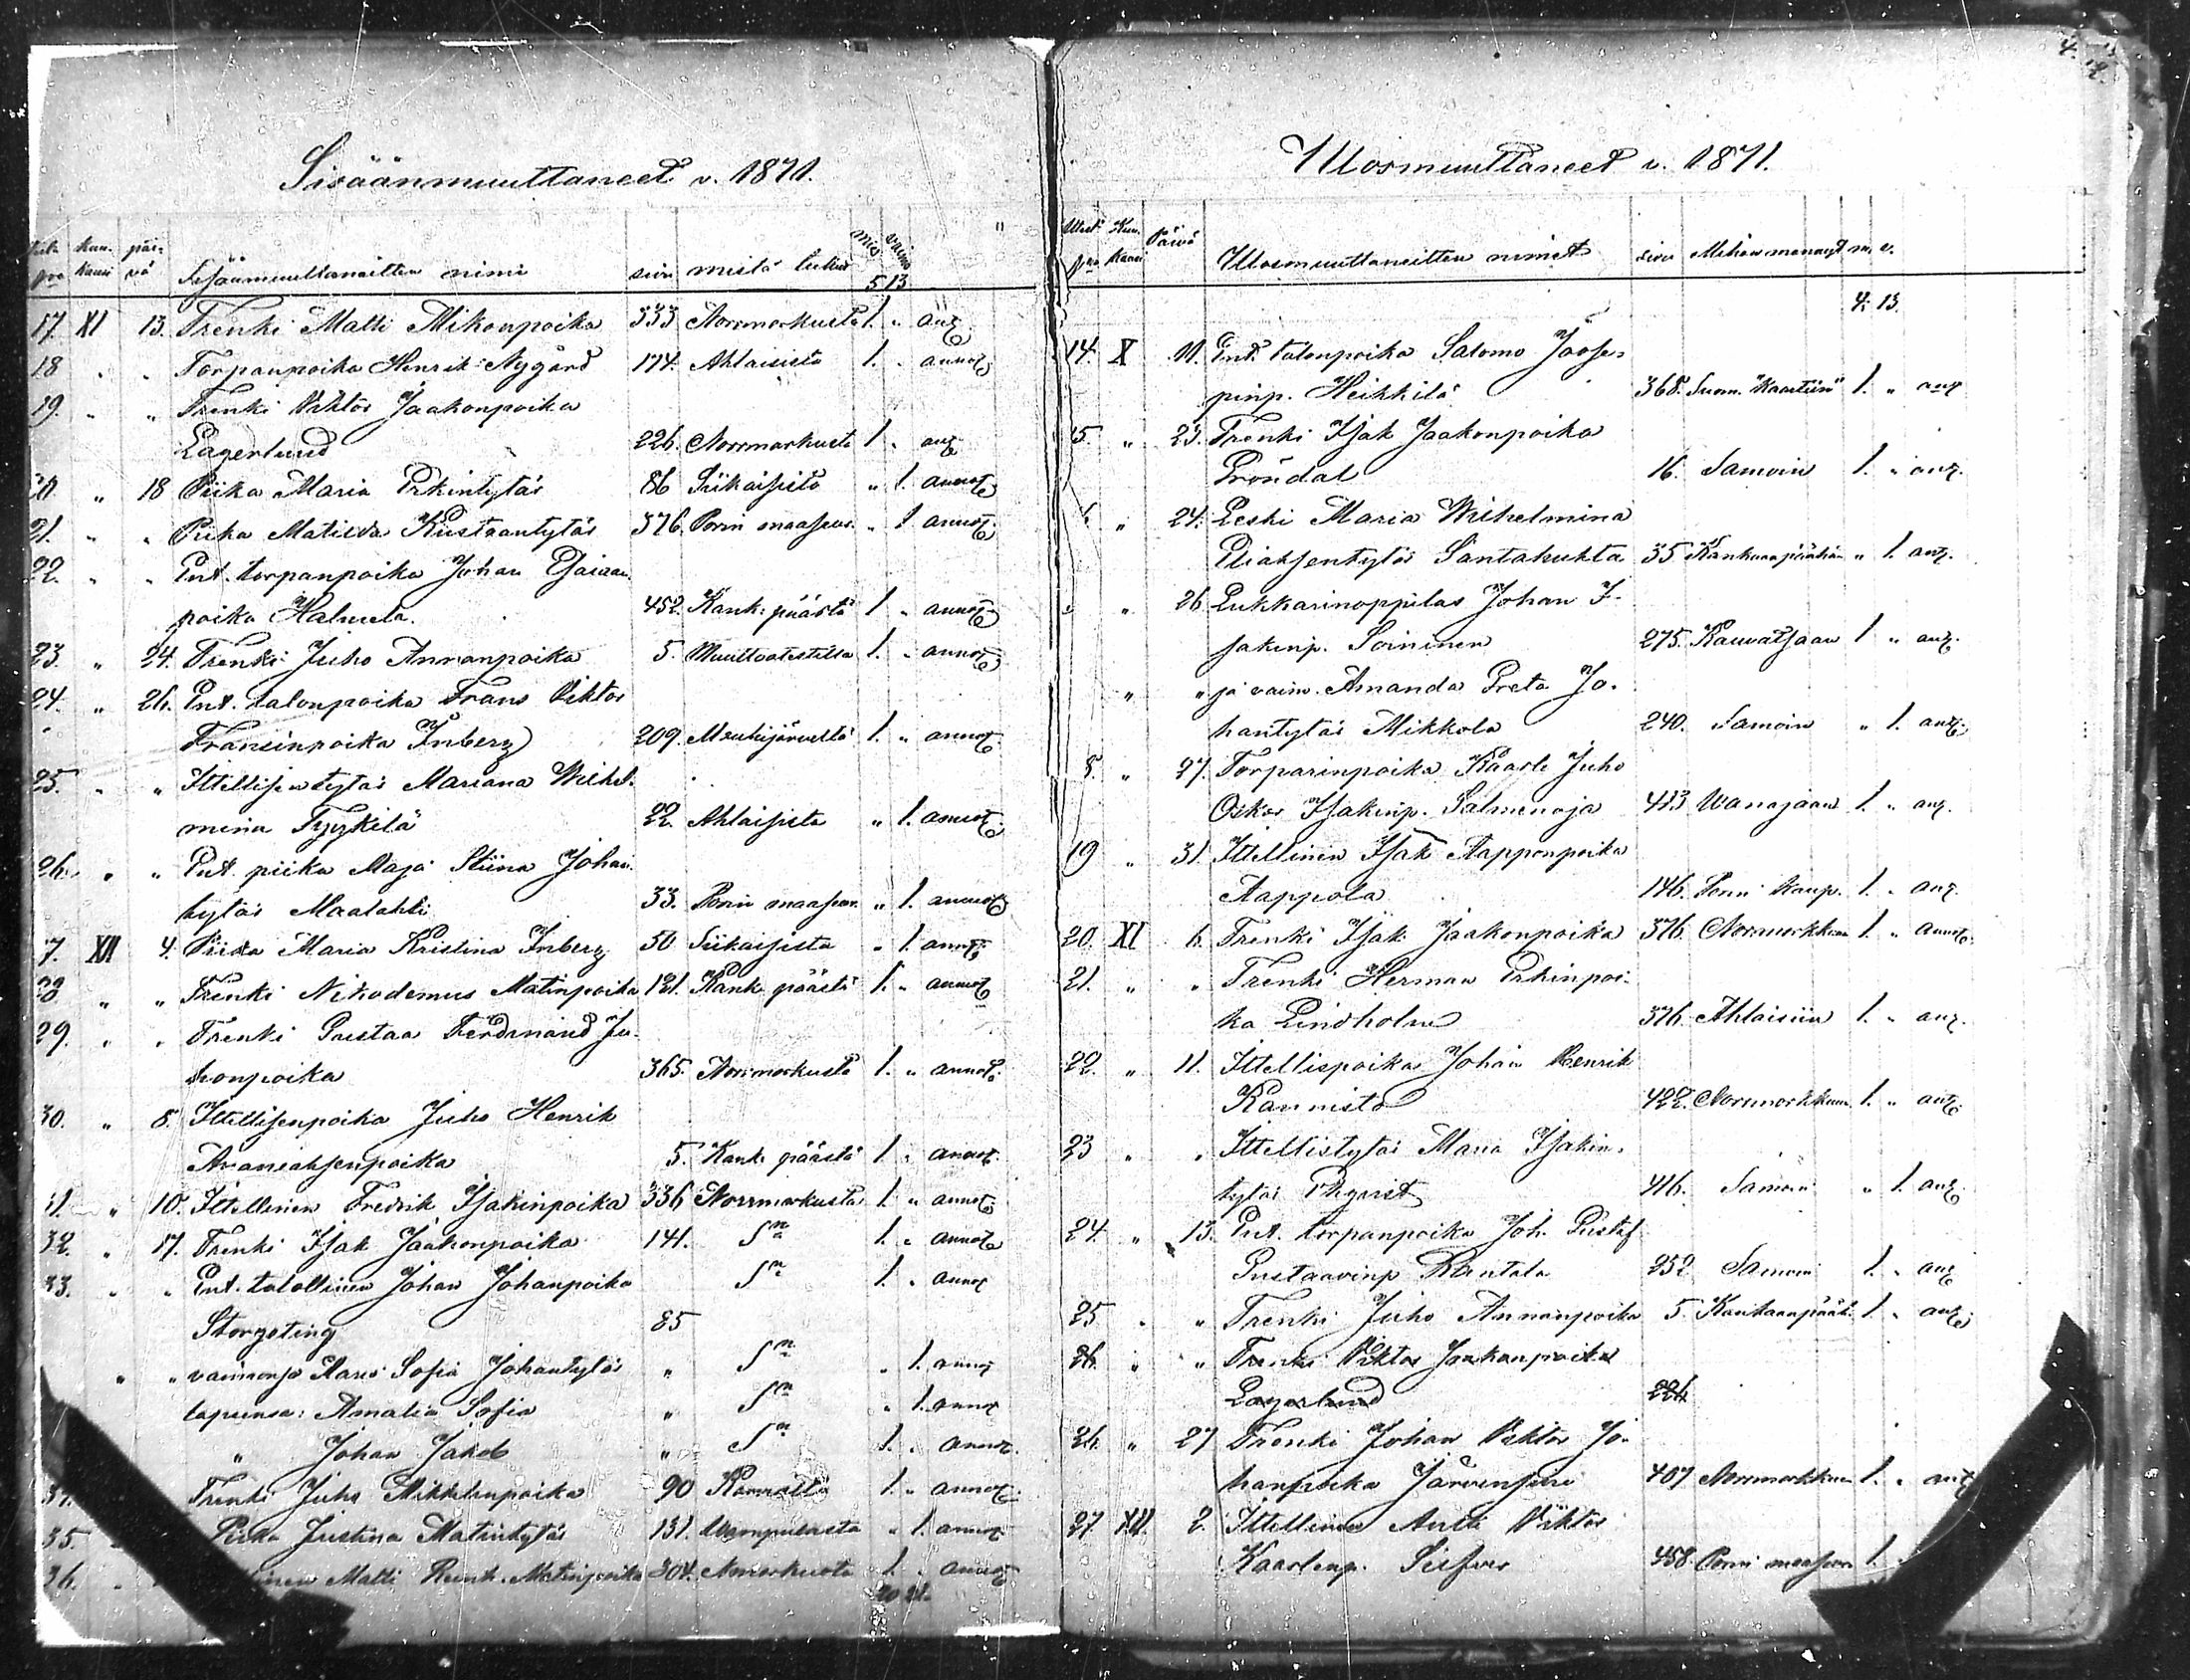 4.
Sisäänmuuttaneet v. 1871.
kuu- kausi päi- vä Sisäänmuuttaneitten nimi sivu mistä tulleet mies vaimo
5 13
17. XI 13. Trenki Matti Mikonpoika 333 Norrmarkusta 1. „ ang.
18 „ „ Torpanpoika Henrik Nygård 174. Ahlaisista 1. „ annot.
19. „ „ Trenki Viktor Jaakonpoika
Lagerlund 226. Norrmarkusta 1 „ ang.
„ 18 Piika Maria Erkintytär 86 Siikaisista „ 1. annot.
21. „ „ Piika Matilda Kustaantytär 376. Porin maaseur. „ 1 annot.
22. „ „ Ent. torpanpoika Johan Esaian-
poika Halmela. 452. Kank: päästä 1 „ annot.
23. „ 24. Trenki Juho Annanpoika 5. Muuttoatestilla 1. „ annot.
24. „ 26. Ent. talonpoika Frans Viktor
Fransinpoika Inberg 209. Mouhijärveltä 1. „ annot.
25. „ „ Ittellisentytär Mariana Wilhel-
mina Tyykilä 22. Ahlaisista „ 1. annot.
26. „ „ Ent. piika Maja Stiina Johan-
tytär Maalahti 33. Porin maaseur. „ 1. annot.
7. XII 4. Piika Maria Kristina Inberg 50 Siikaisista „ 1. annot.
28 „ „ Trenki Nikodemus Matinpoika 121. Kank. päästä 1. „ annot.
29. „ „ Trenki Gustaa Ferdinand Ju-
honpoika 365. Norrmarkusta 1. „ annot.
30. „ 8. Ittellisenpoika Juho Henrik
Ananiaksenpoika 5. Kank. päästä 1. „ annot.
31. „ 10. Ittellinen Fredrik Isakinpoika 336 Norrmarkusta 1. „ annot.
32. „ 17. Trenki Isak Jaakonpoika 141. Sn 1. „ annot.
33. „ „ Ent. talollinen Johan Johanpoika Sn 1. „ annot.
Storgeting 85
„ „ vaimonsa Maria Sofia Johantytär „ Sn „ 1. annot.
lapsensa: Amalia Sofia „ Sn „ 1. annot.
„ Johan Jakob „ Sn 1. „ annot.
34. Trenki Juho Mikkelinpoika 90 1. „ annot.
35. Piika Justina Matintytär 131. „ 1. annot.
36. Matti Henrik Matinpoika 304. Nmarkusta 1. „ annot.
20 21.
Ulosmuuttaneet v. 1871.
Kuu- kausi Päivä Ulosmuuttaneitten nimet sivu Mihin menneet m. v.
4. 13.
14. X 11. Ent. talonpoika Salomo Joose-
pinp. Heikkilä 368. Suom. Kaartiin 1. „ ang.
15. „ 23. Trenki Isak Jaakonpoika
Gröndal 16. Samoin 1. „ ang.
„ 24. Leski Maria Wilhelmina
Eliaksentytär Santakuhta 35 Kankaanpäähän „ 1. ang.
„ 26 Lukkarinoppilas Johan I-
sakinp. Soininen 275. Kauvatsaan 1 „ ang.
„ „ ja vaim. Amanda Greta Jo-
hantytär Mikkola 240. Samoin „ 1. ang.
8. „ 27. Torparinpoika Kaarle Juho
Oskar Isakinp. Salmenoja 413 Wanajaan 1. „ ang.
19 „ 31. Ittellinen Isak Aapponpoika
Aappola 146. Porin kaup. 1. „ ang.
20. XI 6. Trenki Isak Jaakonpoika 376. Norrmarkkuun 1. „ annot.
21. „ „ Trenki Herman Erkinpoi-
ka Lindholm 376. Ahlaisiin 1. „ ang.
22. „ 11. Ittellispoika Johan Henrik
Kannisto 422. Norrmarkkuun 1. „ ang.
23 „ „ Ittellistytär Maria Isakin-
tytär 416. Samoin „ 1. ang.
24. „ 13. Ent. torpanpoika Joh. Gustaf
Gustaavinp. Rantala 252 Samoin 1. „ ang.
25 „ „ Trenki Juho Annanpoika 5. Kankaanpääh. 1. „ ang.
26. „ „ Trenki Viktor Jaakonpoika
Lagerlund 226
26. „ 27 Trenki Johan Viktor Jo-
hanpoika Järvensivu 407 Norrmarkkuun 1. „ ang.
27 XII. 2. Ittellinen Antti Viktor
Kaarlenp. 458. Porin maaseur. 1.